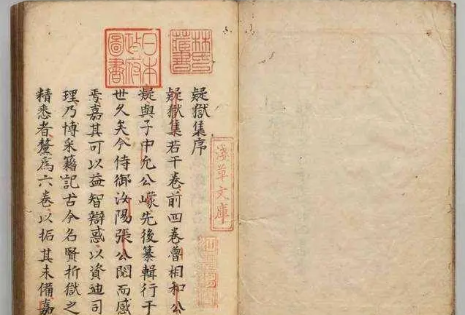 林氏藏書
日本政府圖書
疑獄集序
疑獄集若干卷前四卷相和公
疑與子中允公㠓先後纂輯行于
世久矣今侍御汝陽張公閱而感
焉嘉其可以益智辯惑以資迪司
理乃博采籍記古今名賢折獄之
精悉者釐爲六卷以拓其未備嘉
淺草文庫